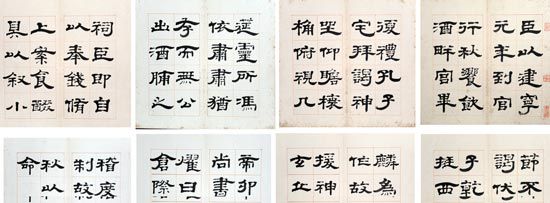 臣以建寧
元年到官
行秋饗飲
酒畔宮畢
復禮孔子
宅拜謁神
坐仰瞻榱
桷俯視几
筵靈所馮
依肅肅猶
存而無公
出酒脯之
祠臣即自
以奉錢脩
上案食醊
具以敘小
節不
謁伏
子乾
挺西
麟為
作故
援神
玄丘
帝卯
尚書
燿曰
倉際
稽度
制故
秋以
命